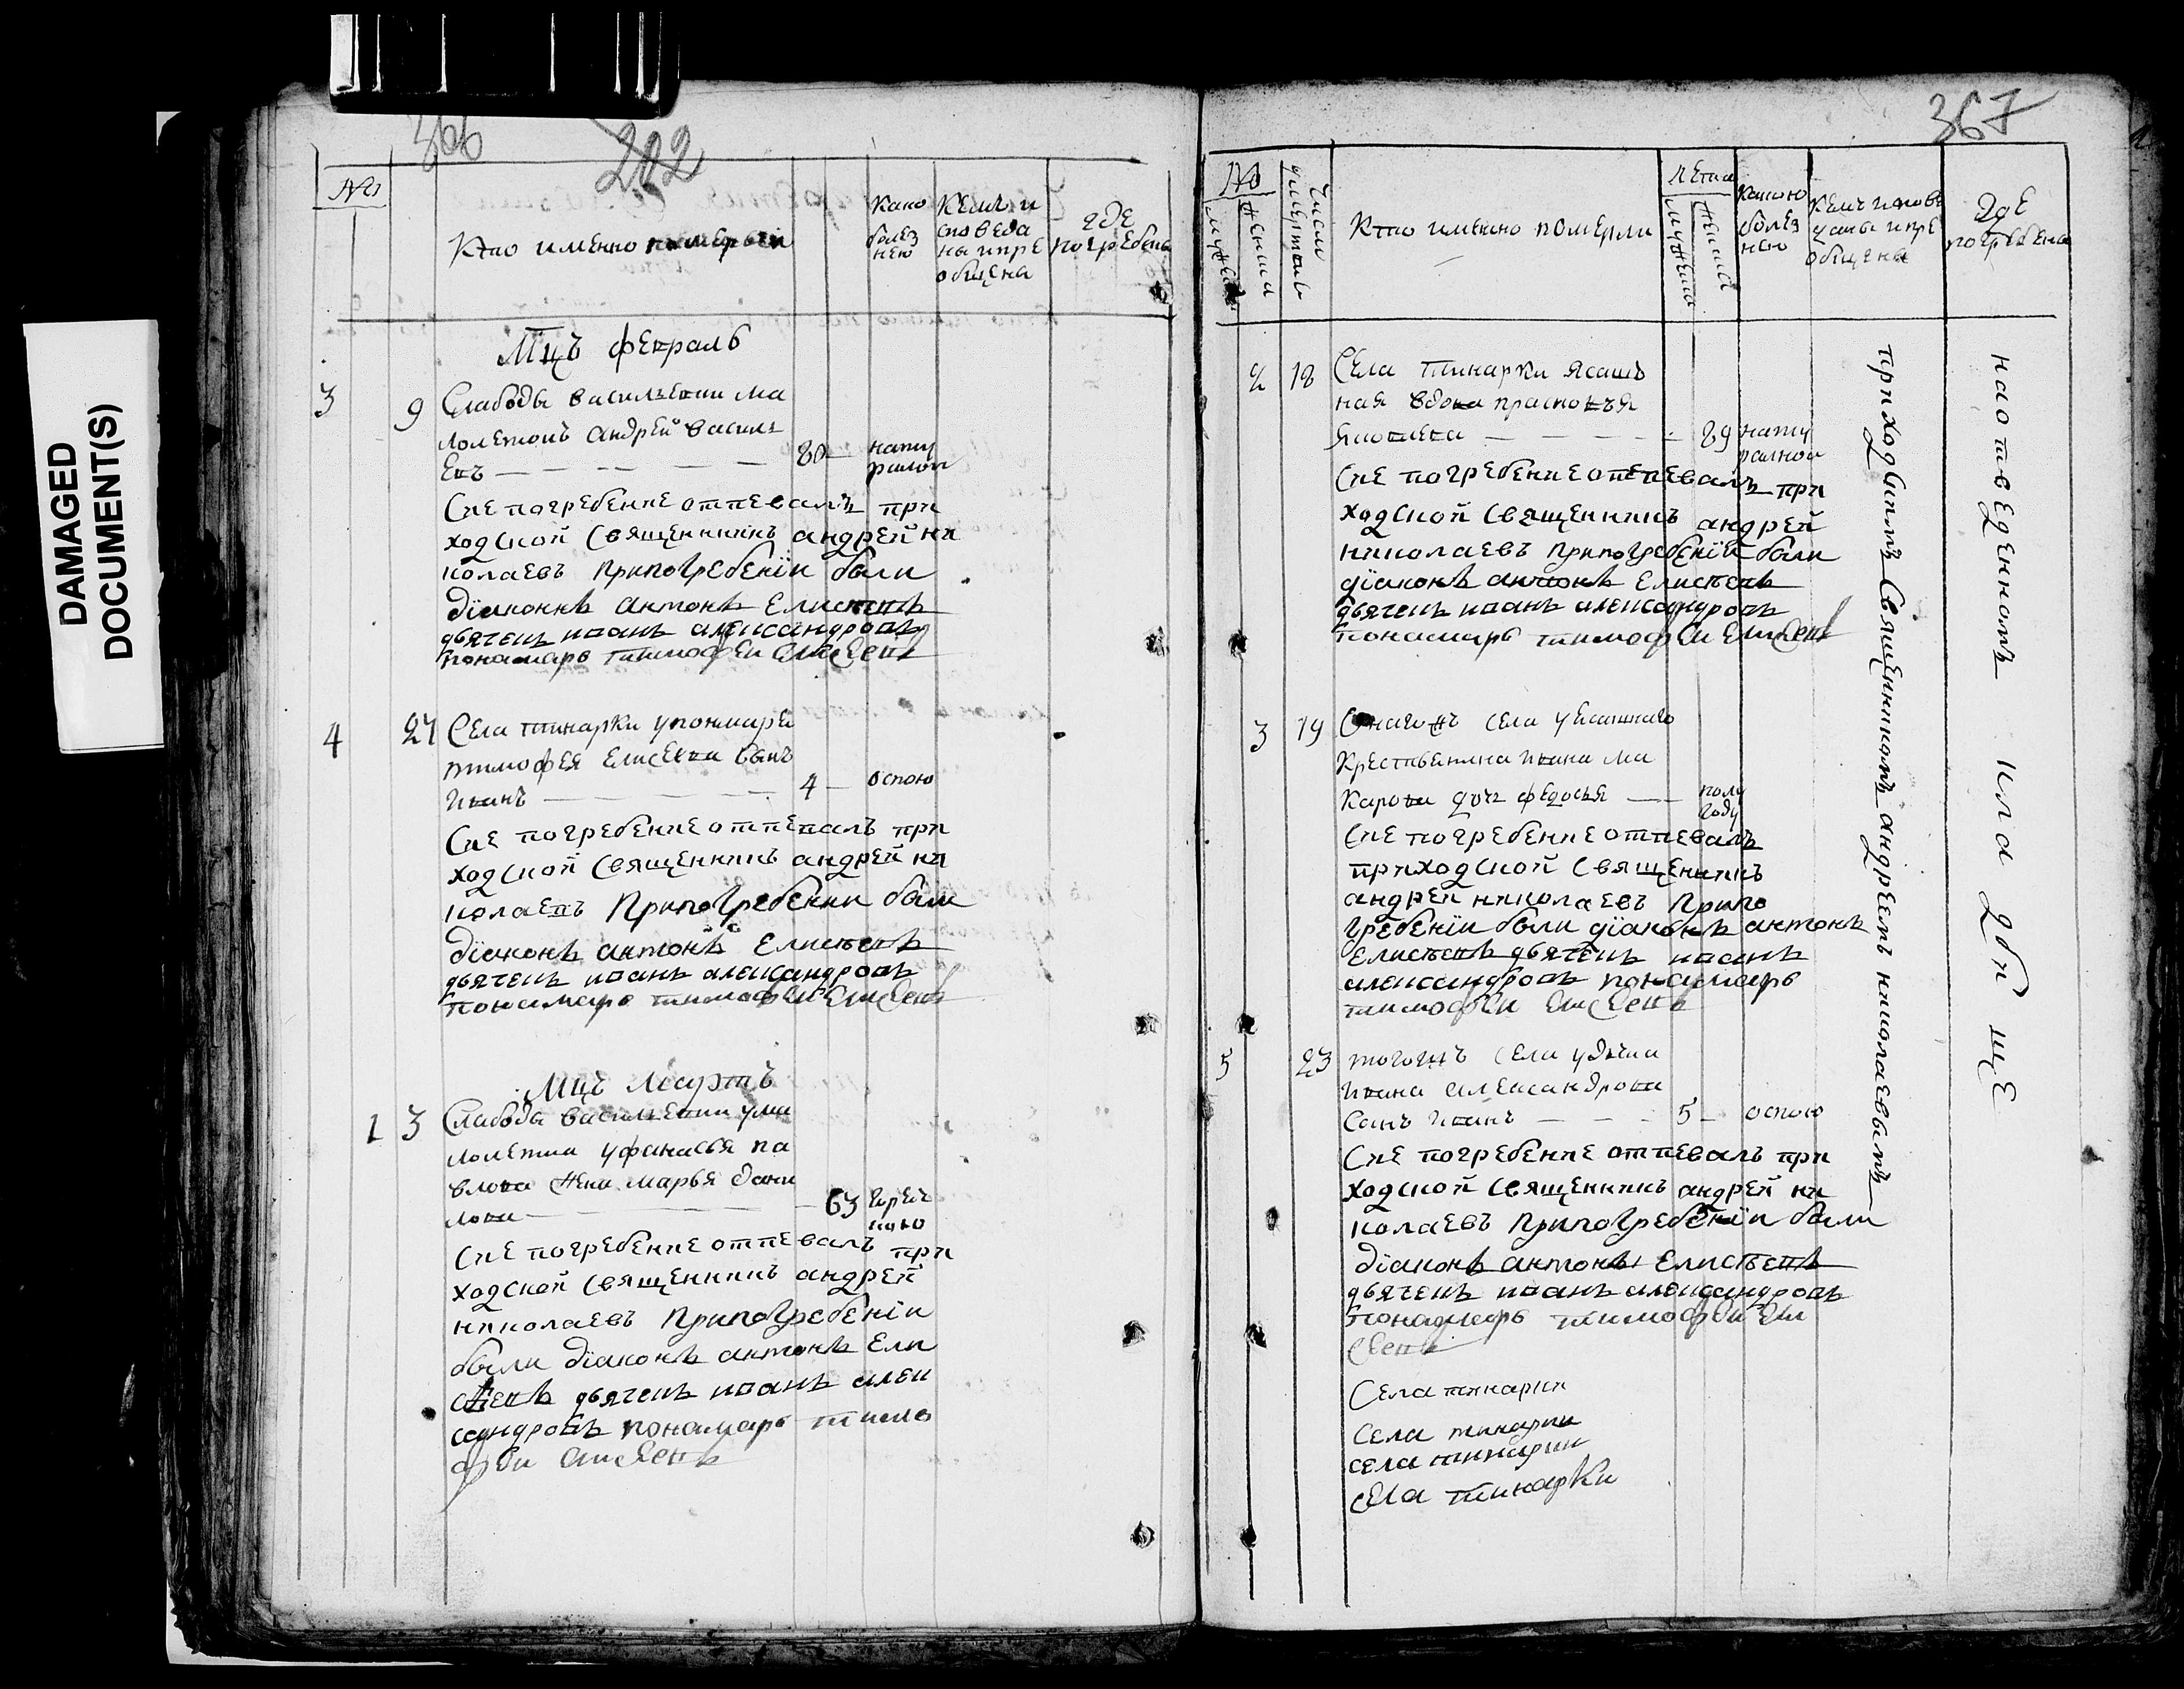 DAMAGED
DOCUMENT(S)
366
202
№
Кто именно померъ
како
болез
нею
Кемъ и
споведа
ны и прі
общена
где
погребены
Мцъ февраль
3
9
Слабоды василъевки ма
лолетовъ андрей василь
евъ
80
нату
ралои
Сие погребение отпевалъ при
ходской священникъ андрей ни
колаевъ при погребеніи были
діаконъ антонъ Елисѣевъ
дьячекъ иванъ александровъ
понамарь тимофей елисеевъ
4
27
Села тинарки упонмаря
тимофея Елисеева сынъ
Иванъ
4
оспою
Сие погребение отпевалъ при
ходской священникъ андрей ни
колаевъ при погребении были
діаконъ антонъ Елисѣевъ
дьячекъ иванъ александровъ
понамарь тимофей елисеевъ
Мцъ Мартъ
1
3
Слабоды василъевки ума
лолетка уфанасья па
влова жена марья дани
лова
63
горяч
кою
Сие погребение отпевалъ при
ходской священникъ андрей
николаевъ при погребеніи
были діаконъ антонъ Ели
сѣевъ дьячекъ иванъ алек
сандровъ понамарь тимо
фей елисеевъ
367
№
мужеска
женска
Число
умертвiя
Кто именно померли
лета
мужеска
женска
какою
болез
нею
Кемъ испове
даны и прі
общены
Где
погребены
2
18
Села тинарки ясаш
ная вдова прасковъя
яковлева
89
нату
ралнои
Сие погребение отпевалъ при
ходской священникъ андрей
николаевъ при погребеніи были
діаконъ антонъ Елисѣевъ
дьячекъ иванъ александровъ
понамарь тимофей елисеевъ
3
19
Онагожъ села уясашнаго
Крестьянина ивана ма
карова дочь федосья
полу
году
Сие погребение отпевалъ
приходской священникъ
андрей николаевъ при по
гребеніи были діаконъ антонъ
Елисѣевъ дьячекъ иванъ
александровъ понамарь
тимофей елисеевъ
5
23
тогожъ села удьячка
ивана александрова
Сынъ иванъ
5
оспою
Сие погребение отпевалъ при
ходской священникъ андрей ни
колаевъ при погребеніи были
діаконъ антонъ Елисѣевъ
дьячекъ иванъ александровъ
понамарь тимофей ели
сеевъ
Села тинарки
Села тинарки
села тинарки
села тинарки
приходскимъ священникомъ андреемъ николаевымъ
на отведенномъ кладбище